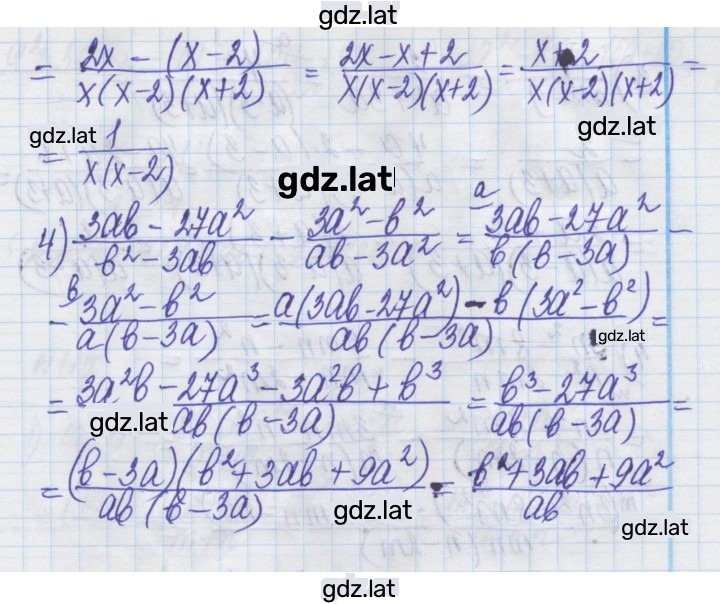 gdz.lat
= (2x - (x-2))/(x(x-2)(x+2)) = (2x-x+2)/(x(x-2)(x+2)) = (x+2)/(x(x-2)(x+2)) =
gdz.lat
gdz.lat
= 1/(x(x-2))
gdz.lat
4) (3ab - 27a²)/(b² - 3ab) - (3a² - b²)/(ab - 3a²) = ᵃ(3ab - 27a²)/(b(b-3a)) -
- ᵇ(3a² - b²)/(a(b-3a)) = (a(3ab-27a²) - b(3a²-b²))/(ab(b-3a)) =
gdz.lat
= (3a²b - 27a³ - 3a²b + b³)/(ab(b-3a)) = (b³ - 27a³)/(ab(b-3a)) =
gdz.lat
= ((b-3a)(b²+3ab+9a²))/(ab(b-3a)) = (b²+3ab+9a²)/(ab)
gdz.lat
gdz.lat
gdz.lat